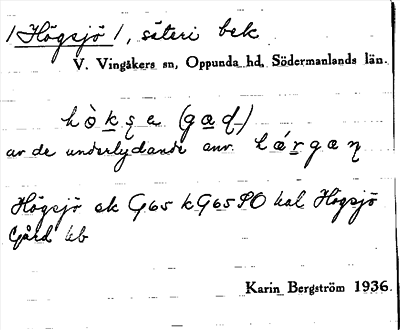 /Högsjö/, säteri bek
V. Vingåkers sn, Oppunda hd, Södermanlands län.
hò̀kṣe (gaɖ)
av de underlydande anv. lárgaɳ
Högsjö ek G65 kG65 PO hal Högsjö
Gård kb
Karin Bergström 1936.